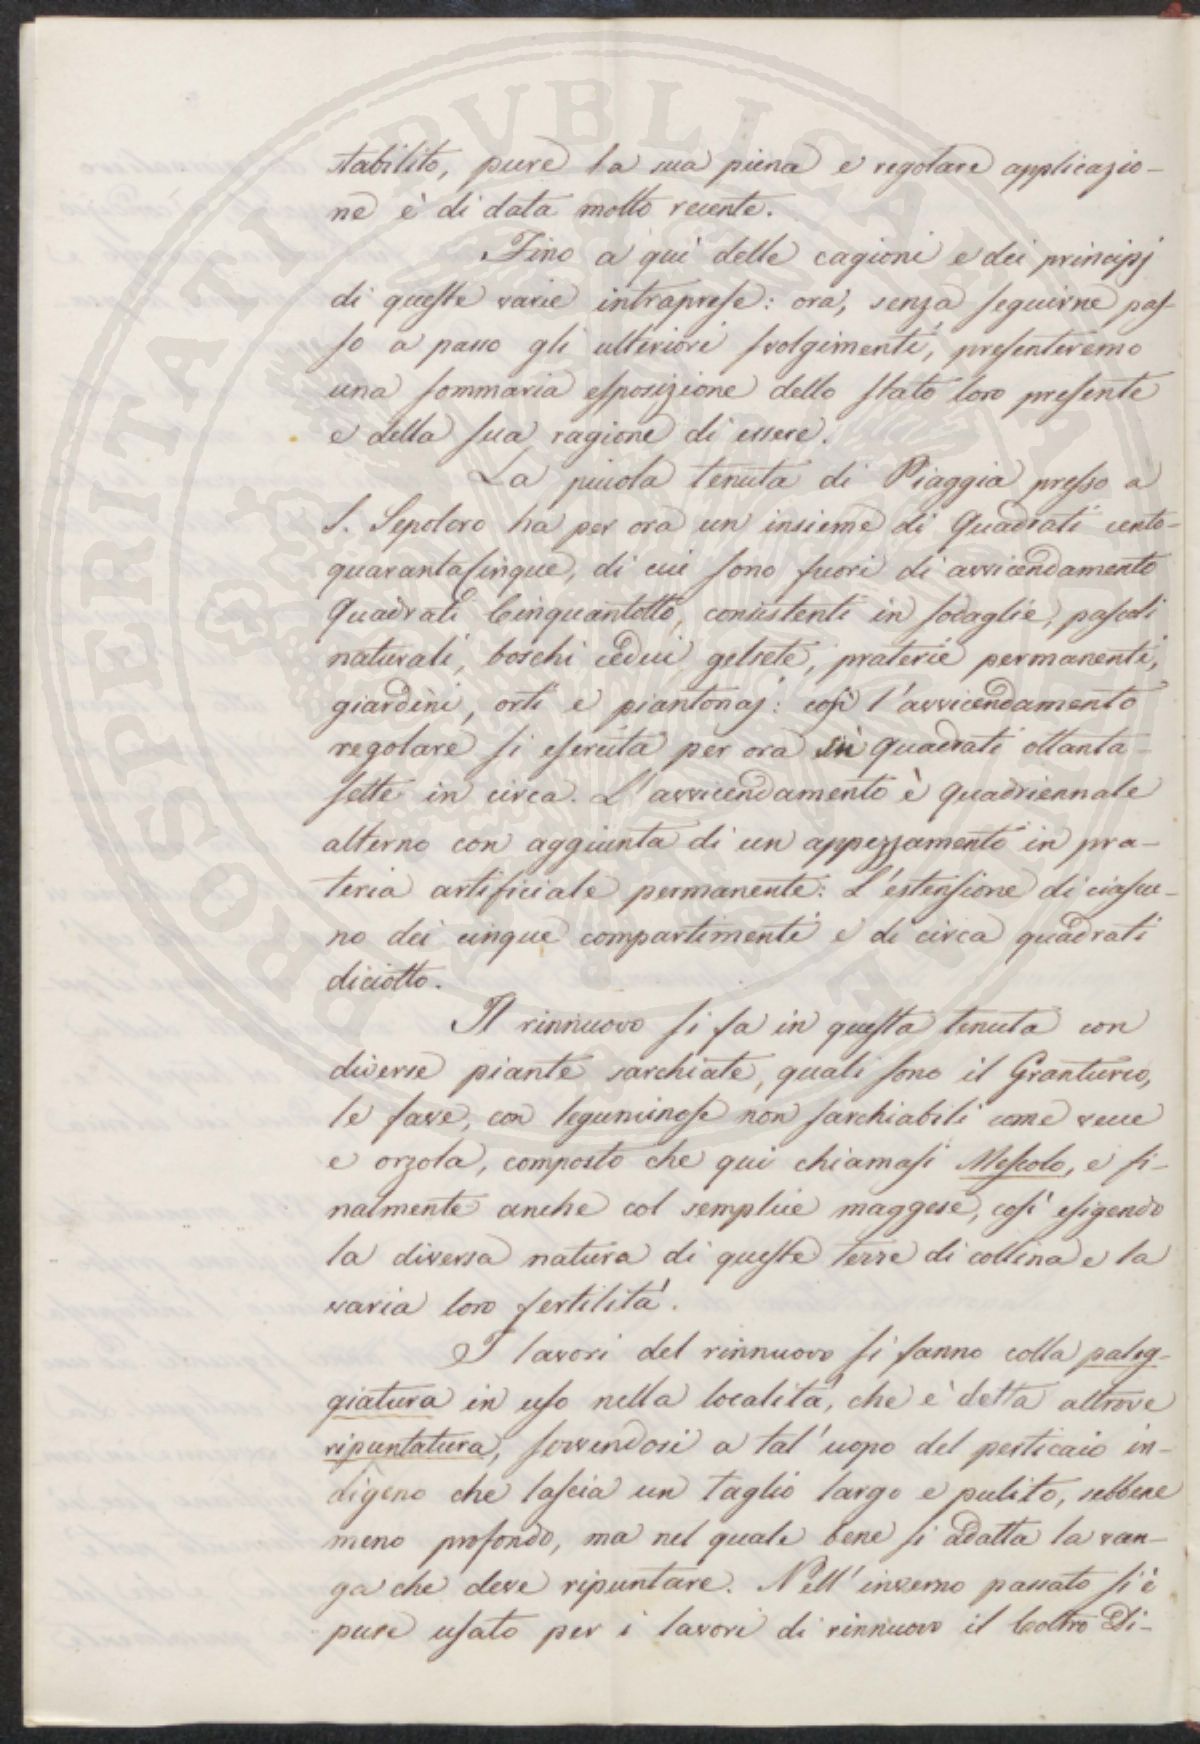 stabilito, pure la sua piena e regolare applicazio-
ne è di data molto recente.
Fino a qui delle cagioni e dei principj
di queste varie intraprese: ora, senza seguirne pas-
so a passo gli ulteriori svolgimenti, presenteremo
una sommaria esposizione dello stato loro presente
e della sua ragione di essere.
La piccola tenuta di Piaggia presso a
S. Sepolcro ha per ora un insieme di Quadrati cento-
quarantacinque, di cui sono fuori di avvicendamento
Quadrati Cinquantotto, consistenti in sodaglie, pascoli
naturali, boschi cedui, gelsete, praterie permanenti,
giardini, orti e piantonaj: così l'avvicendamento
regolare si esercita per ora su quadrati ottanta-
sette in circa. L'avvicendamento è quadriennale
alterno con aggiunta di un appezzamento in pra-
teria artificiale permanente: L'estensione di ciascu-
no dei cinque compartimenti è di circa quadrati
diciotto.
Il rinnuovo si fa in questa tenuta con
diverse piante sarchiate, quali sono il Granturco,
le fave, con leguminose non sarchiabili come vecce
e orzola, composto che qui chiamasi Mescolo, e fi-
nalmente anche col semplice maggese, così esigendo
la diversa natura di queste terre di collina e la
varia loro fertilità.
I lavori del rinnuovo si fanno colla paleg-
giatura in uso nella località, che è detta altrove
ripuntatura, servendosi a tal'uopo del perticaio in-
digeno che lascia un taglio largo e pulito, sebbene
meno profondo, ma nel quale bene si adatta la van-
ga che deve ripuntare. Nell'inverno passato si è
pure usato per i lavori di rinnuovo il Coltro Di-
PROSPERITATI PVBLICAE